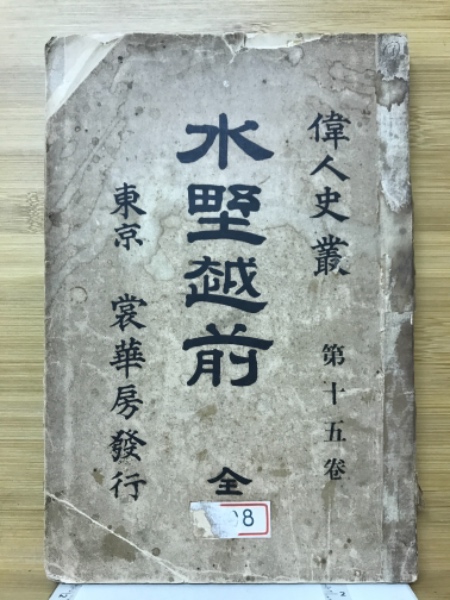 偉人史叢 第十五卷
水野越前 全
東京 裳華房發行
8